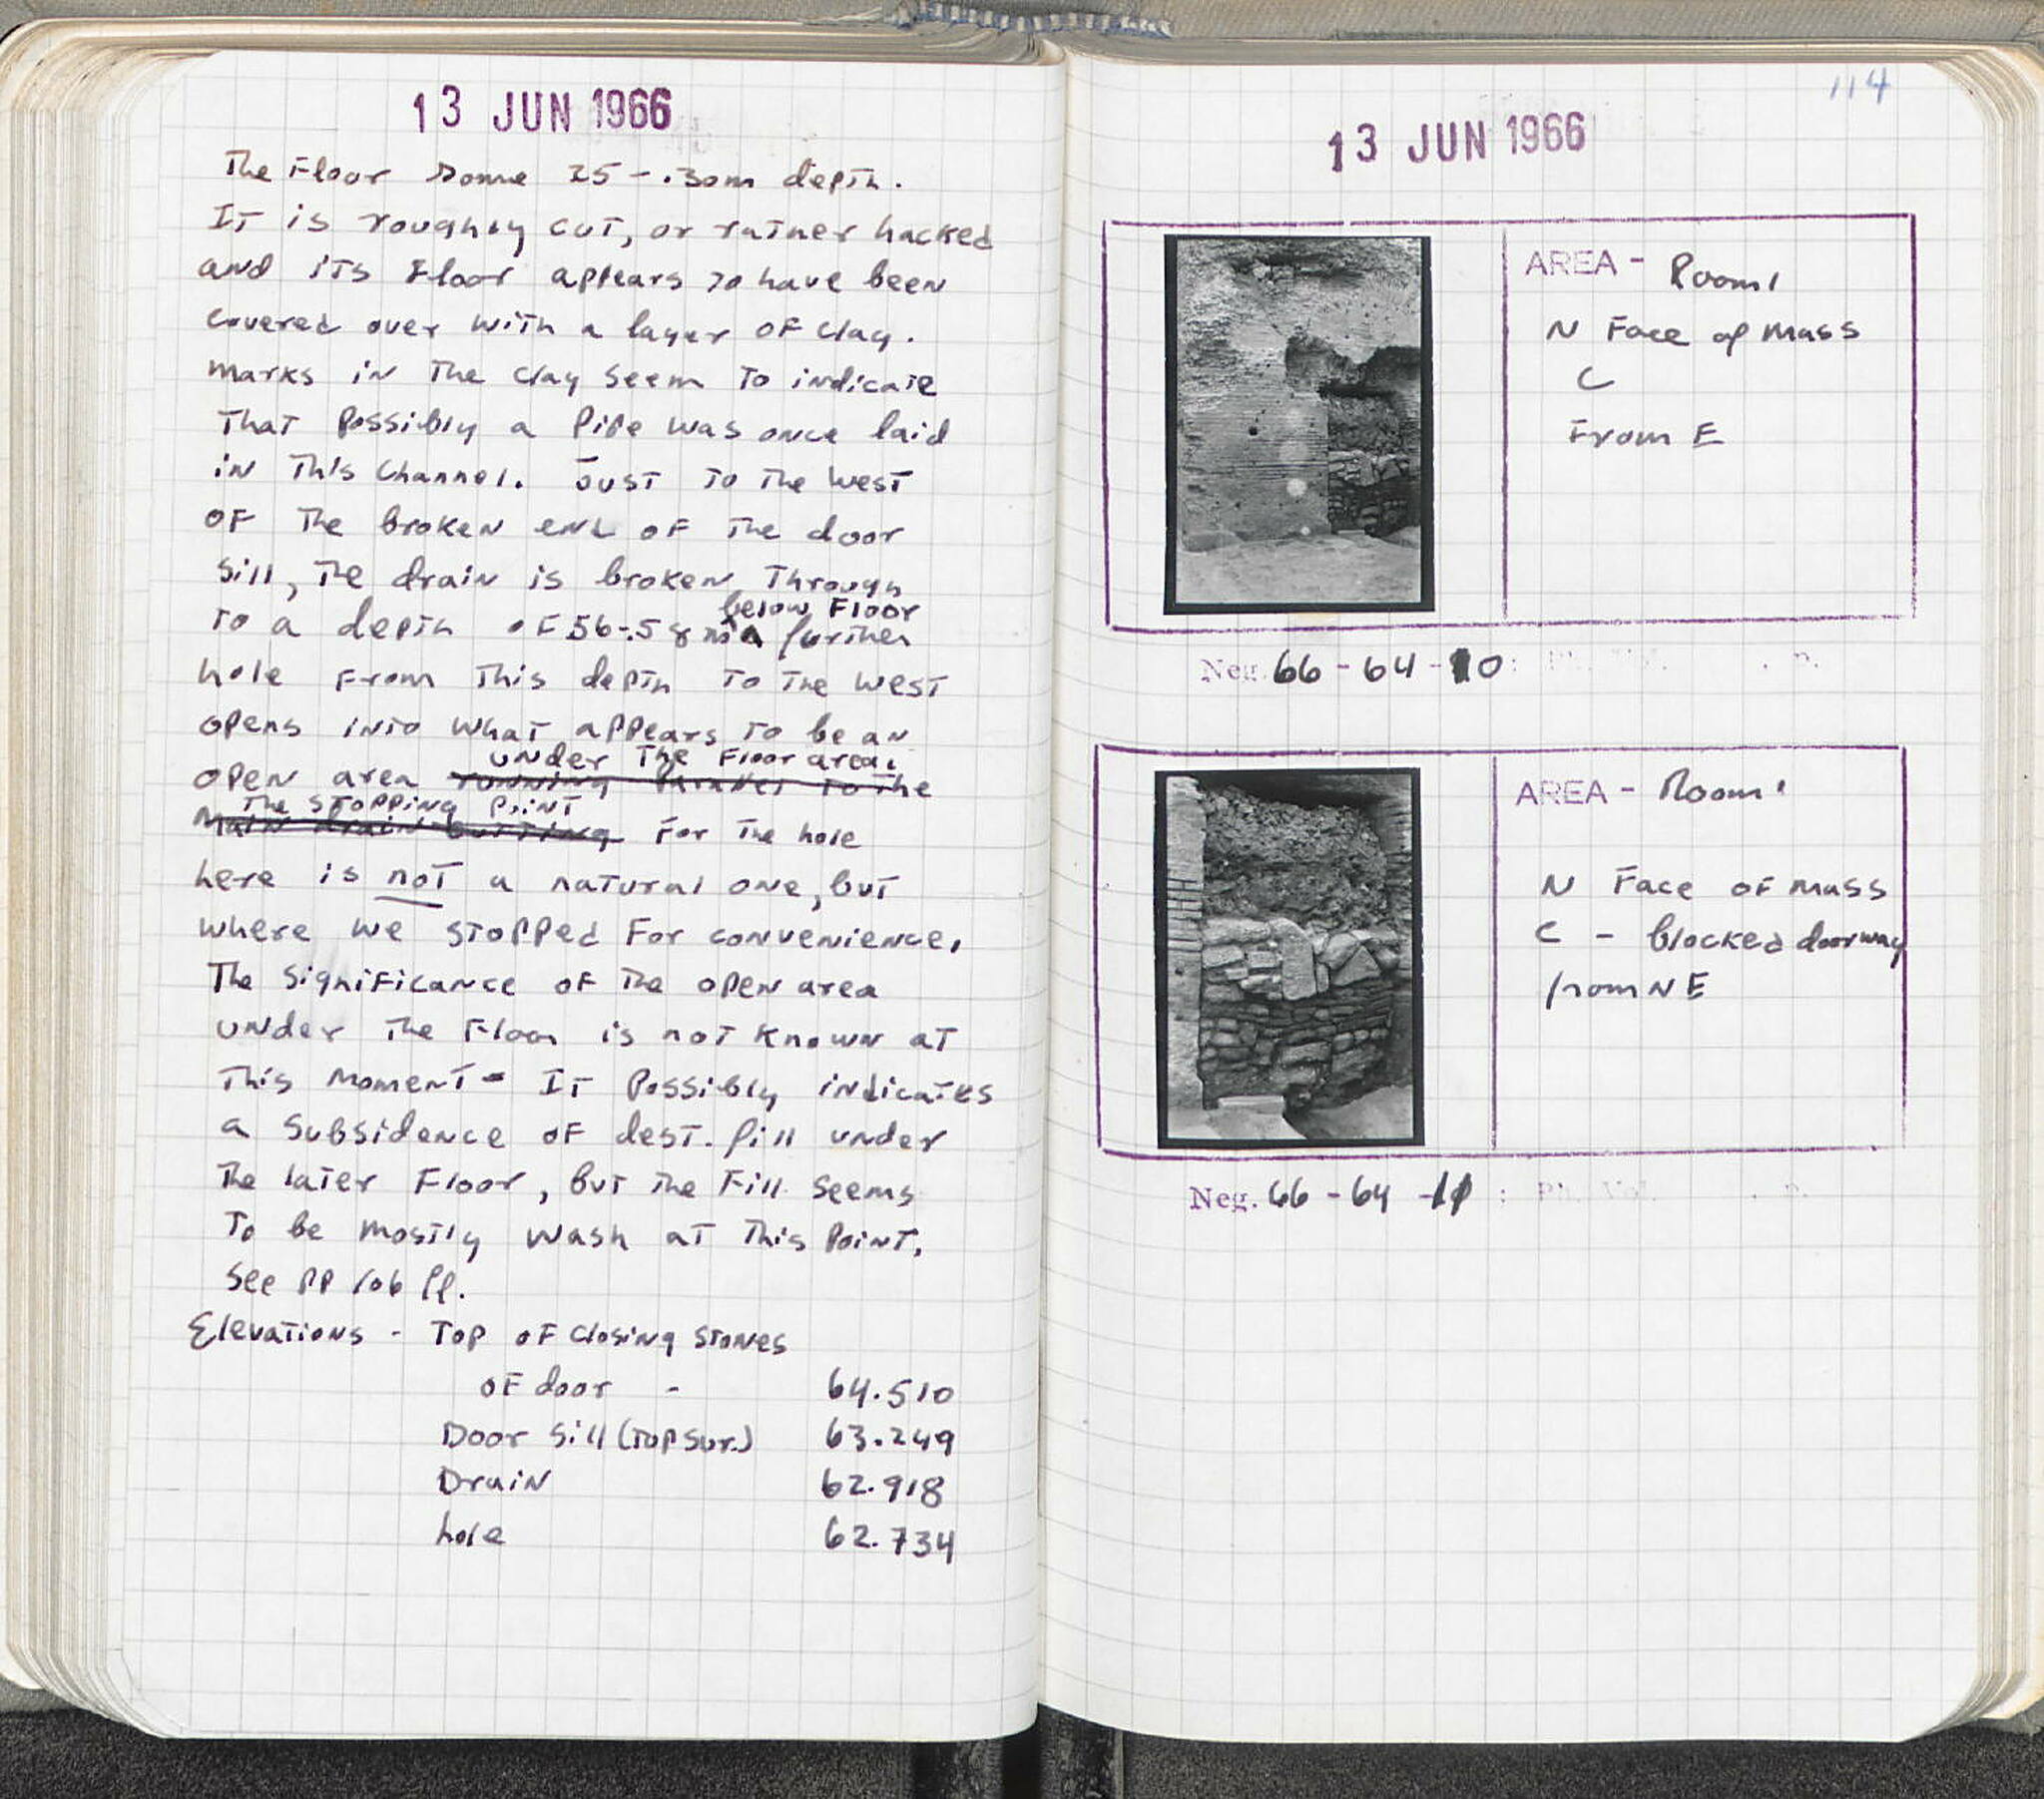 13 JUN 1966
The Floor some 25-.30m depth.
It is roughly cut, or rather hacked
and its Floor appears to have been
covered over with a layer of clay.
Marks in the clay seem to indicate
that possibly a pipe was once laid
in this channel. Just to the west
of the broken end of the door
sill, the drain is broken through
below Floor
to a depth of 56-.58 m a further
hole from this depth to the west
opens into what appears to be an
under the Floor area.
open area running parallel to the
the stopping point
main drain cutting for the hole
here is not a natural one, but
where we stopped for convenience.
The significance of the open area
under the Floor is not known at
this moment - It possibly indicates
a subsidence of dest. fill under
the later Floor, but the Fill seems
to be mostly wash at this point.
See pp 106 ff.
Elevations - Top of closing stones
of door - 64.510
Door Sill (Top sur.) 63.249
Drain 62.918
hole 62.734
114
13 JUN 1966
AREA - Room 1
N Face of Mass
C
From E
Neg. 66-64-10:
AREA - Room 1
N Face of Mass
C - blocked doorway
from NE
Neg. 66-64-11 :